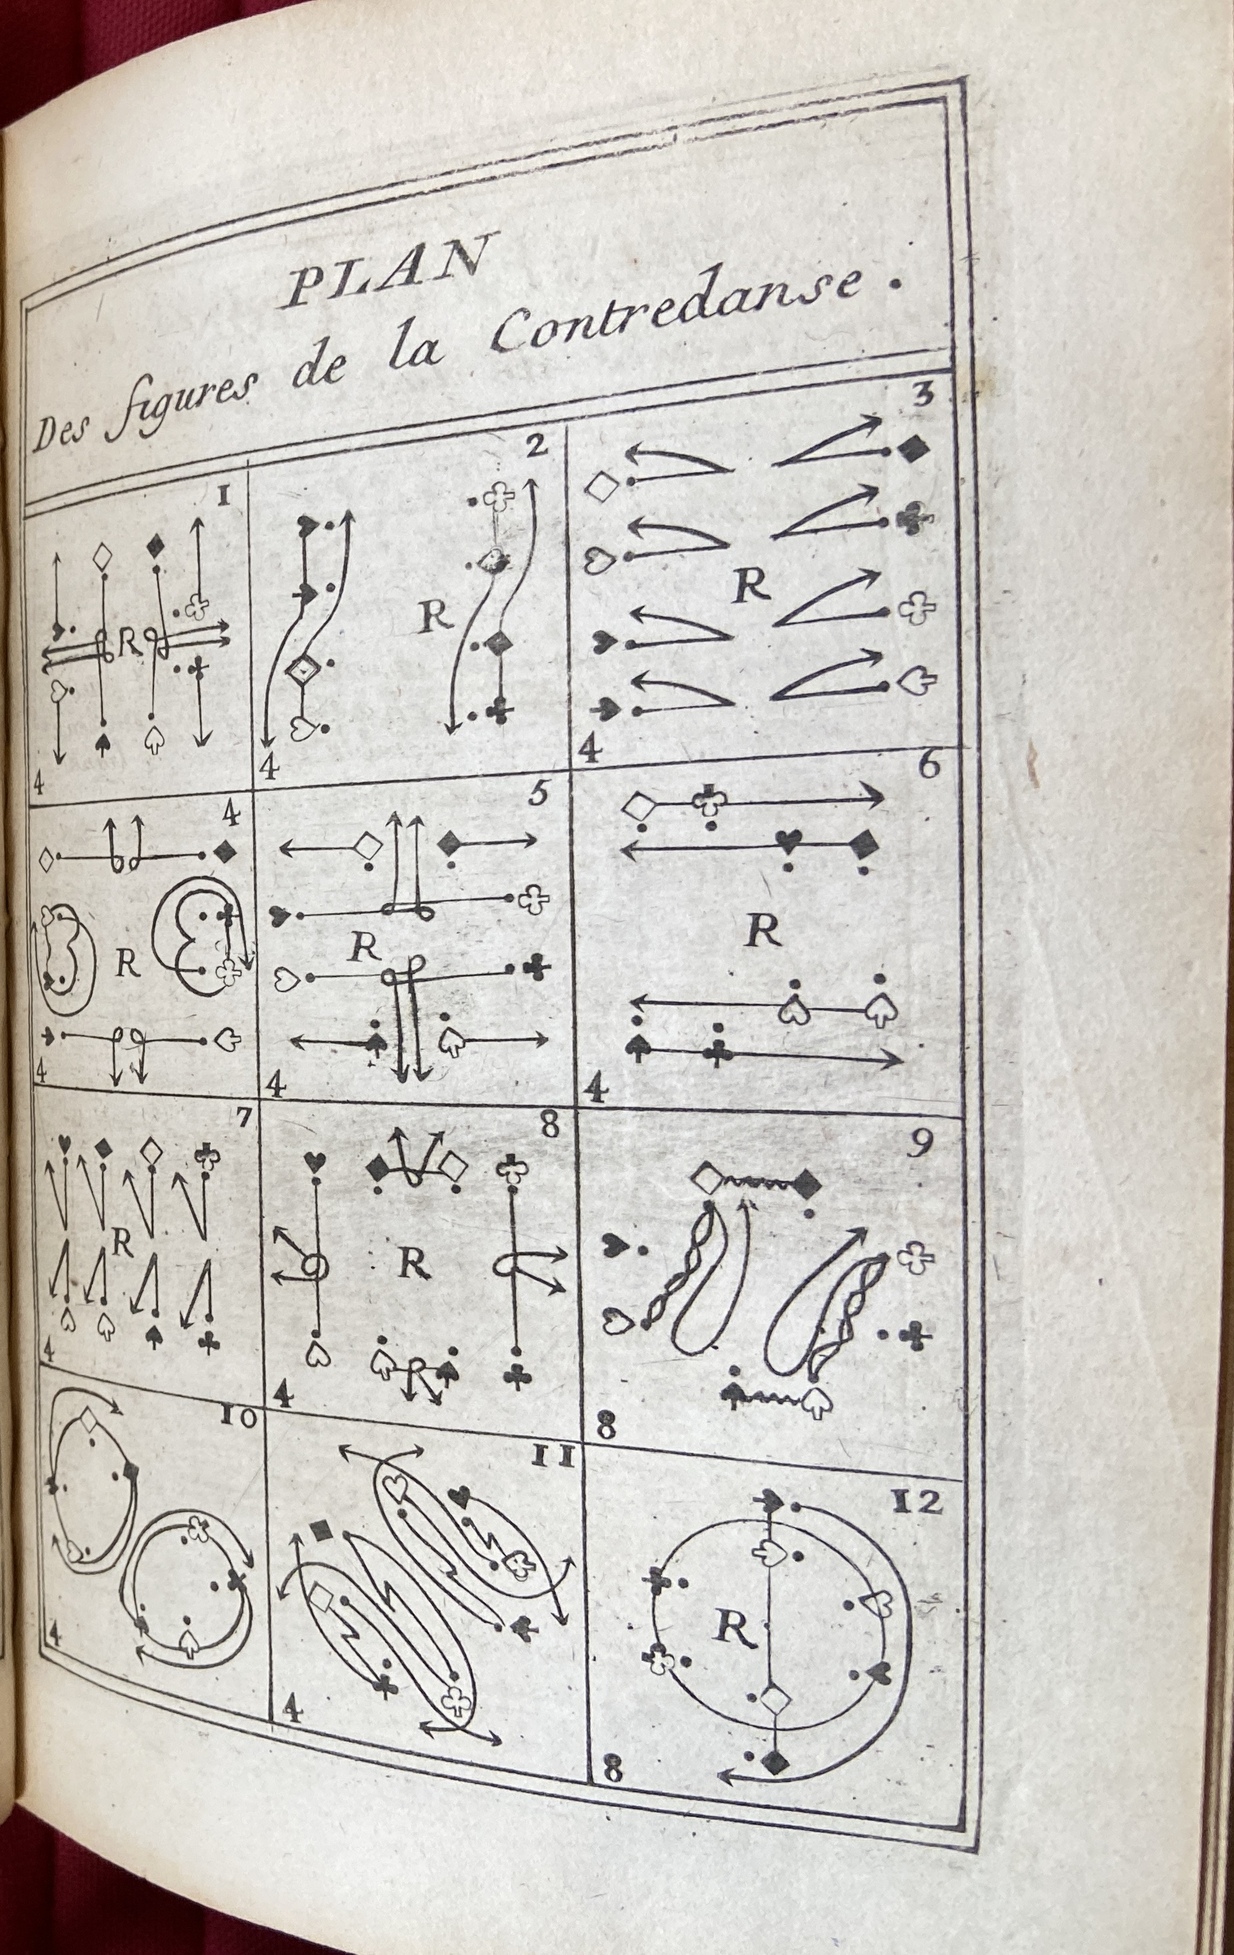 PLAN
Des figures de la Contredanse.
1
R
4
2
R
4
3
R
4
4
R
4
5
R
4
6
R
4
7
R
4
8
R
4
9
8
10
4
11
4
12
R
8